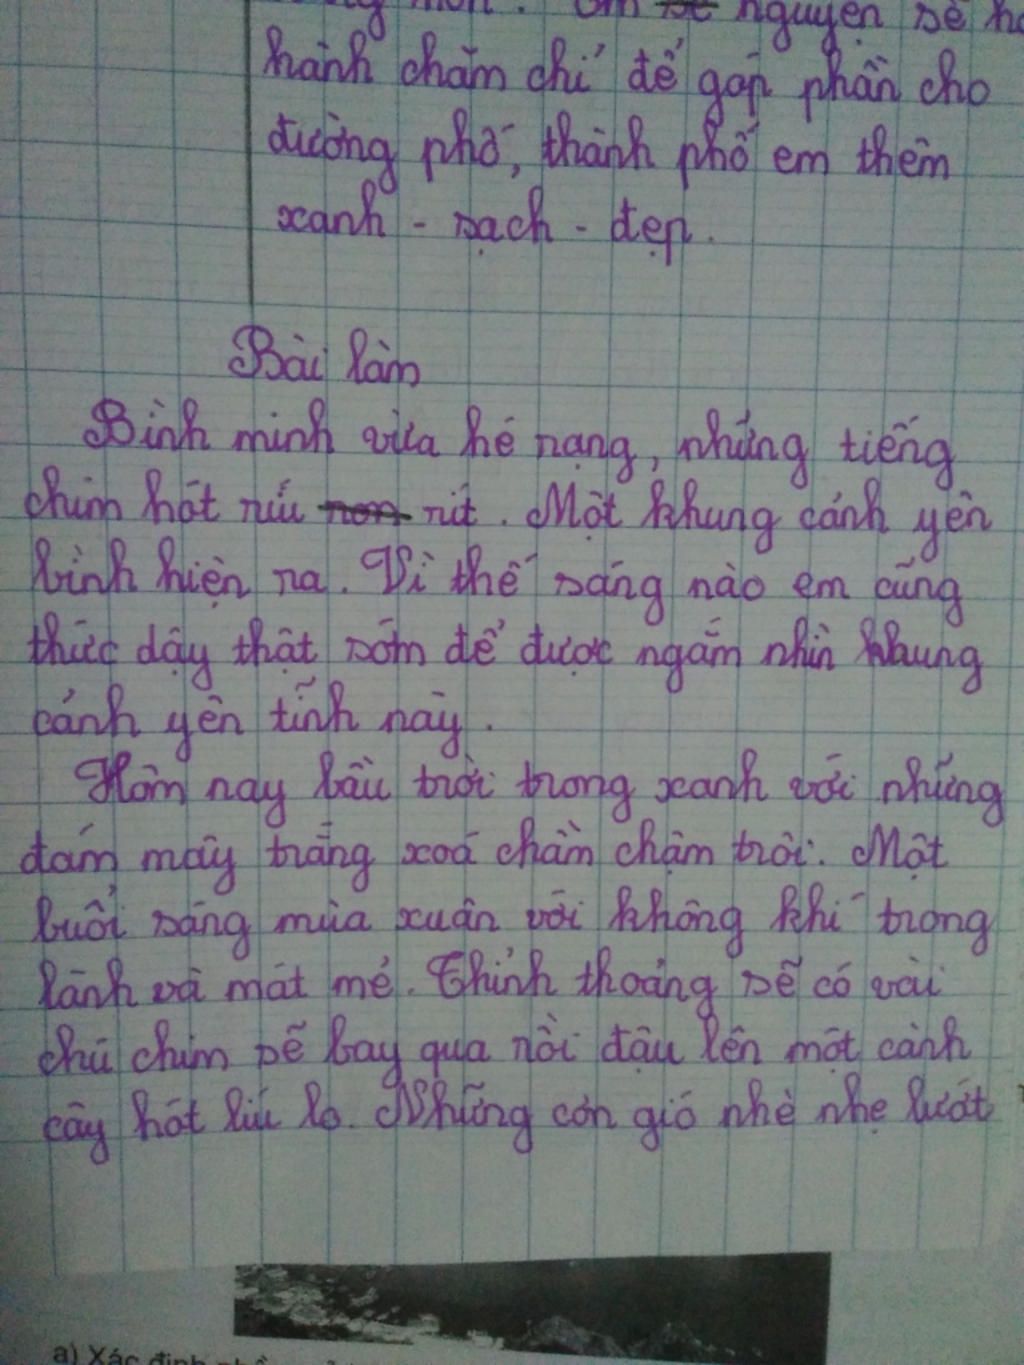 nguyện sẽ
hành chăm chỉ để góp phần cho
đường phố, thành phố em thêm
xanh - sạch - đẹp.
Bài làm
Bình minh vừa hé rạng, những tiếng
chim hót ríu non rít. Một khung cảnh yên
bình hiện ra. Vì thế sáng nào em cũng
thức dậy thật sớm để được ngắm nhìn khung
cảnh yên tĩnh này.
Hôm nay bầu trời trong xanh với những
đám mây trắng xoá chầm chậm trôi. Một
buổi sáng mùa xuân với không khí trong
lành và mát mẻ. Thỉnh thoảng sẽ có vài
chú chim sẽ bay qua rồi đậu lên một cành
cây hót líu lo. Những cơn gió nhè nhẹ lướt
a) Xác định